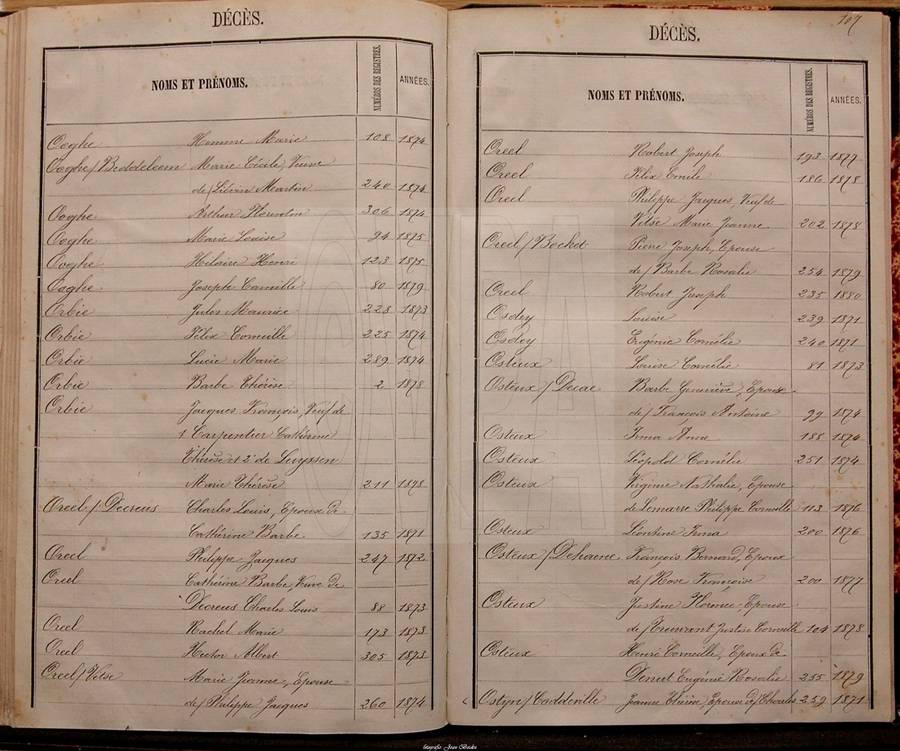 DÉCÈS.
NOMS ET PRÉNOMS. NUMÉROS DES REGISTRES. ANNÉES.
Ooghe Marie 108 1874
Ooghe / Marie Cécile, Veuve
de / Liévin Martin 240 1874
Ooghe Arthur 306 1874
Ooghe Marie Louise 94 1875
Ooghe Hilaire Henri 123 1875
Ooghe Joseph Camille 80 1879
Orbie Jules Maurice 228 1873
Orbie Félix Corneille 225 1874
Orbie Lucie Marie 289 1874
Orbie Barbe Thérèse 2 1878
Orbie Jacques François, Veuf de
1. Carpentier Cathérine
Thérèse et 2° de Luyssen
Marie Thérèse 211 1878
Oreel / Decreus Charles Louis, Epoux de
Cathérine Barbe 135 1871
Oreel Philippe Jacques 247 1872
Oreel Cathérine Barbe, Veuve de
Decreus Charles Louis 88 1873
Oreel Rachel Marie 173 1873
Oreel Hector Albert 305 1873
Oreel / Vitse Marie Jeanne, Epouse
de / Philippe Jacques 260 1874
107
DÉCÈS.
NOMS ET PRÉNOMS. NUMÉROS DES REGISTRES. ANNÉES.
Oreel Robert Joseph 193 1877
Oreel Félix Emile 186 1878
Oreel Philippe Jacques, Veuf de
Vitse Marie Jeanne 202 1878
Oreel / Pierre Joseph, Epouse
de / Barbe Rosalie 254 1879
Oreel Robert Joseph 235 1880
Osdey Louise 239 1871
Osdey Eugénie Cornélie 240 1871
Osteux Louise Cornélie 81 1873
Osteux / Decae Barbe Geneviève, Epouse
de / François Antoine 99 1874
Osteux Irma Anna 188 1874
Osteux Léopold Cornélie 251 1874
Osteux Virginie Nathalie, Epouse
de Lemarre Philippe Corneille 113 1876
Osteux Léontine Irma 200 1876
Osteux / Dehaene François Bernard, Epoux
de / Rose Françoise 200 1877
Osteux Justine Florence, Epouse
de / Justin Corneille 104 1878
Osteux Henri Corneille, Epoux de
Deruet Eugénie Rosalie 255 1879
Ostyn / Jeanne Epouse d / Charles 259 1871